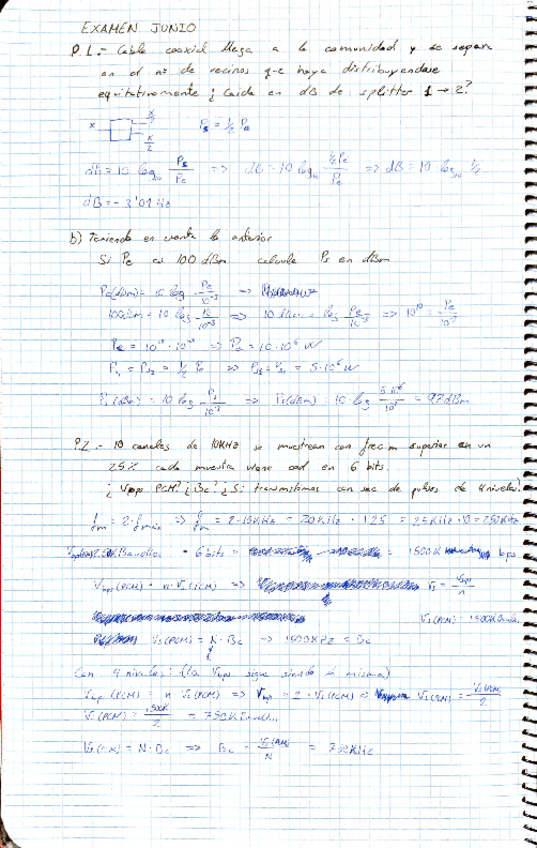 EXAMEN JUNIO
P.1.- Cable coaxial llega a la comunidad y se separa
en el nº de vecinos que haya distribuyendose
equitativamente ¿Caida en dB de splitter 1 → 2?
x x/2 x/2 Ps = 1/2 Pe
dB = 10 log10 Ps/Pe => dB = 10 log10 (1/2 Pe)/Pe => dB = 10 log10 1/2
dB = - 3'01 Hz
b) Teniendo en cuenta lo anterior
Si Pe es 100 dBm calcula Ps en dBm
Pe(dBm) = 10 log Pe/10^-3 =>
100 dBm = 10 log Pe/10^-3 => 10 dBm = log Pe/10^-3 => 10^10 = Pe/10^-3
Pe = 10^10 · 10^-3 => Pe = 10·10^6 W
Ps1 = Ps2 = 1/2 Pe => Ps1 = Ps2 = 5·10^6 W
Ps(dBm) = 10 log Ps/10^-3 => Ps(dBm) = 10 · log 5·10^6/10^-3 = 97 dBm
P.2.- 10 canales de 10KHz se muestrean con frec m superior en un
25% cada muestra viene cod en 6 bits.
¿Vbps PCM? ¿Bc? ¿Si transmitimos con sec de pulsos de 4 niveles?
fm = 2·fmax => fm = 2·10KHz = 20KHz · 1'25 = 25KHz · 10 = 250KHz
· 6 bits = = 1500K bps
Vbps (PCM) = n·Vs(PCM) => Vs = Vbps/n
Vs(PCM) = 1500K
Vs(PCM) = N · Bc => 1500KHz = Bc
Con 4 niveles: (la Vbps sigue siendo la misma)
Vbps (PCM) = n Vs(PCM) => Vbps = 2 · Vs(PCM) => Vs(PCM) =
Vs(PCM) = 1500K/2 = 750K
Vs(PCM) = N·Bc => Bc = Vs(PCM)/N = 750KHz